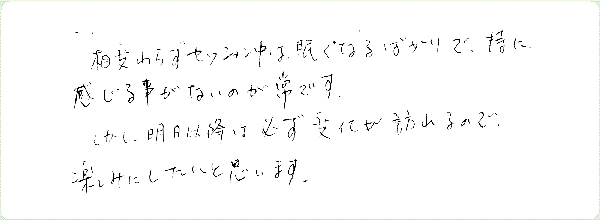 相変わらずセッション中は、眠くなるばかりで、特に
感じる事がないのが常です。
しかし、明日以降は必ず変化が訪れるので、
楽しみにしたいと思います。